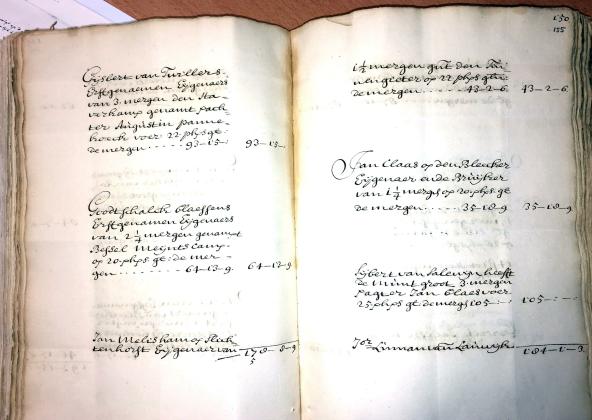 Gijsbert van Twillers
Erffgenaemen Eijgenaers
van 3 mergen den Ha
verkamp genamt pach
ter Augustin panne
hoeck voer 22 phs ge
de mergen 93-15- 93-15-
Godtschalck Claessens
Erffgenamen Eijgenaers
van 2 1/4 mergen genamt
Bessel Meijnts Camp
op 20 phs ge: de mer
gen 64-13-9 64-13-9
Jan Melis ham op Sluch
tenhorst Eijgenaer van
178-8-9
5
150
155
1 1/2 mergen gut den
op 22 phs
de mergen 43-2-6 43-2-6
Jan Claas op den Bleecker
Eijgenaer ende Bruijker
van 1 1/4 mergs op 20 phs ge
de mergen 35-18-9 35-18-9
Gijbert van heeft
de Munt groot 3 mergen
Pagter Jan Claes voer
25 phs ge de mergs 105 105-:-:-
van
184-1-3